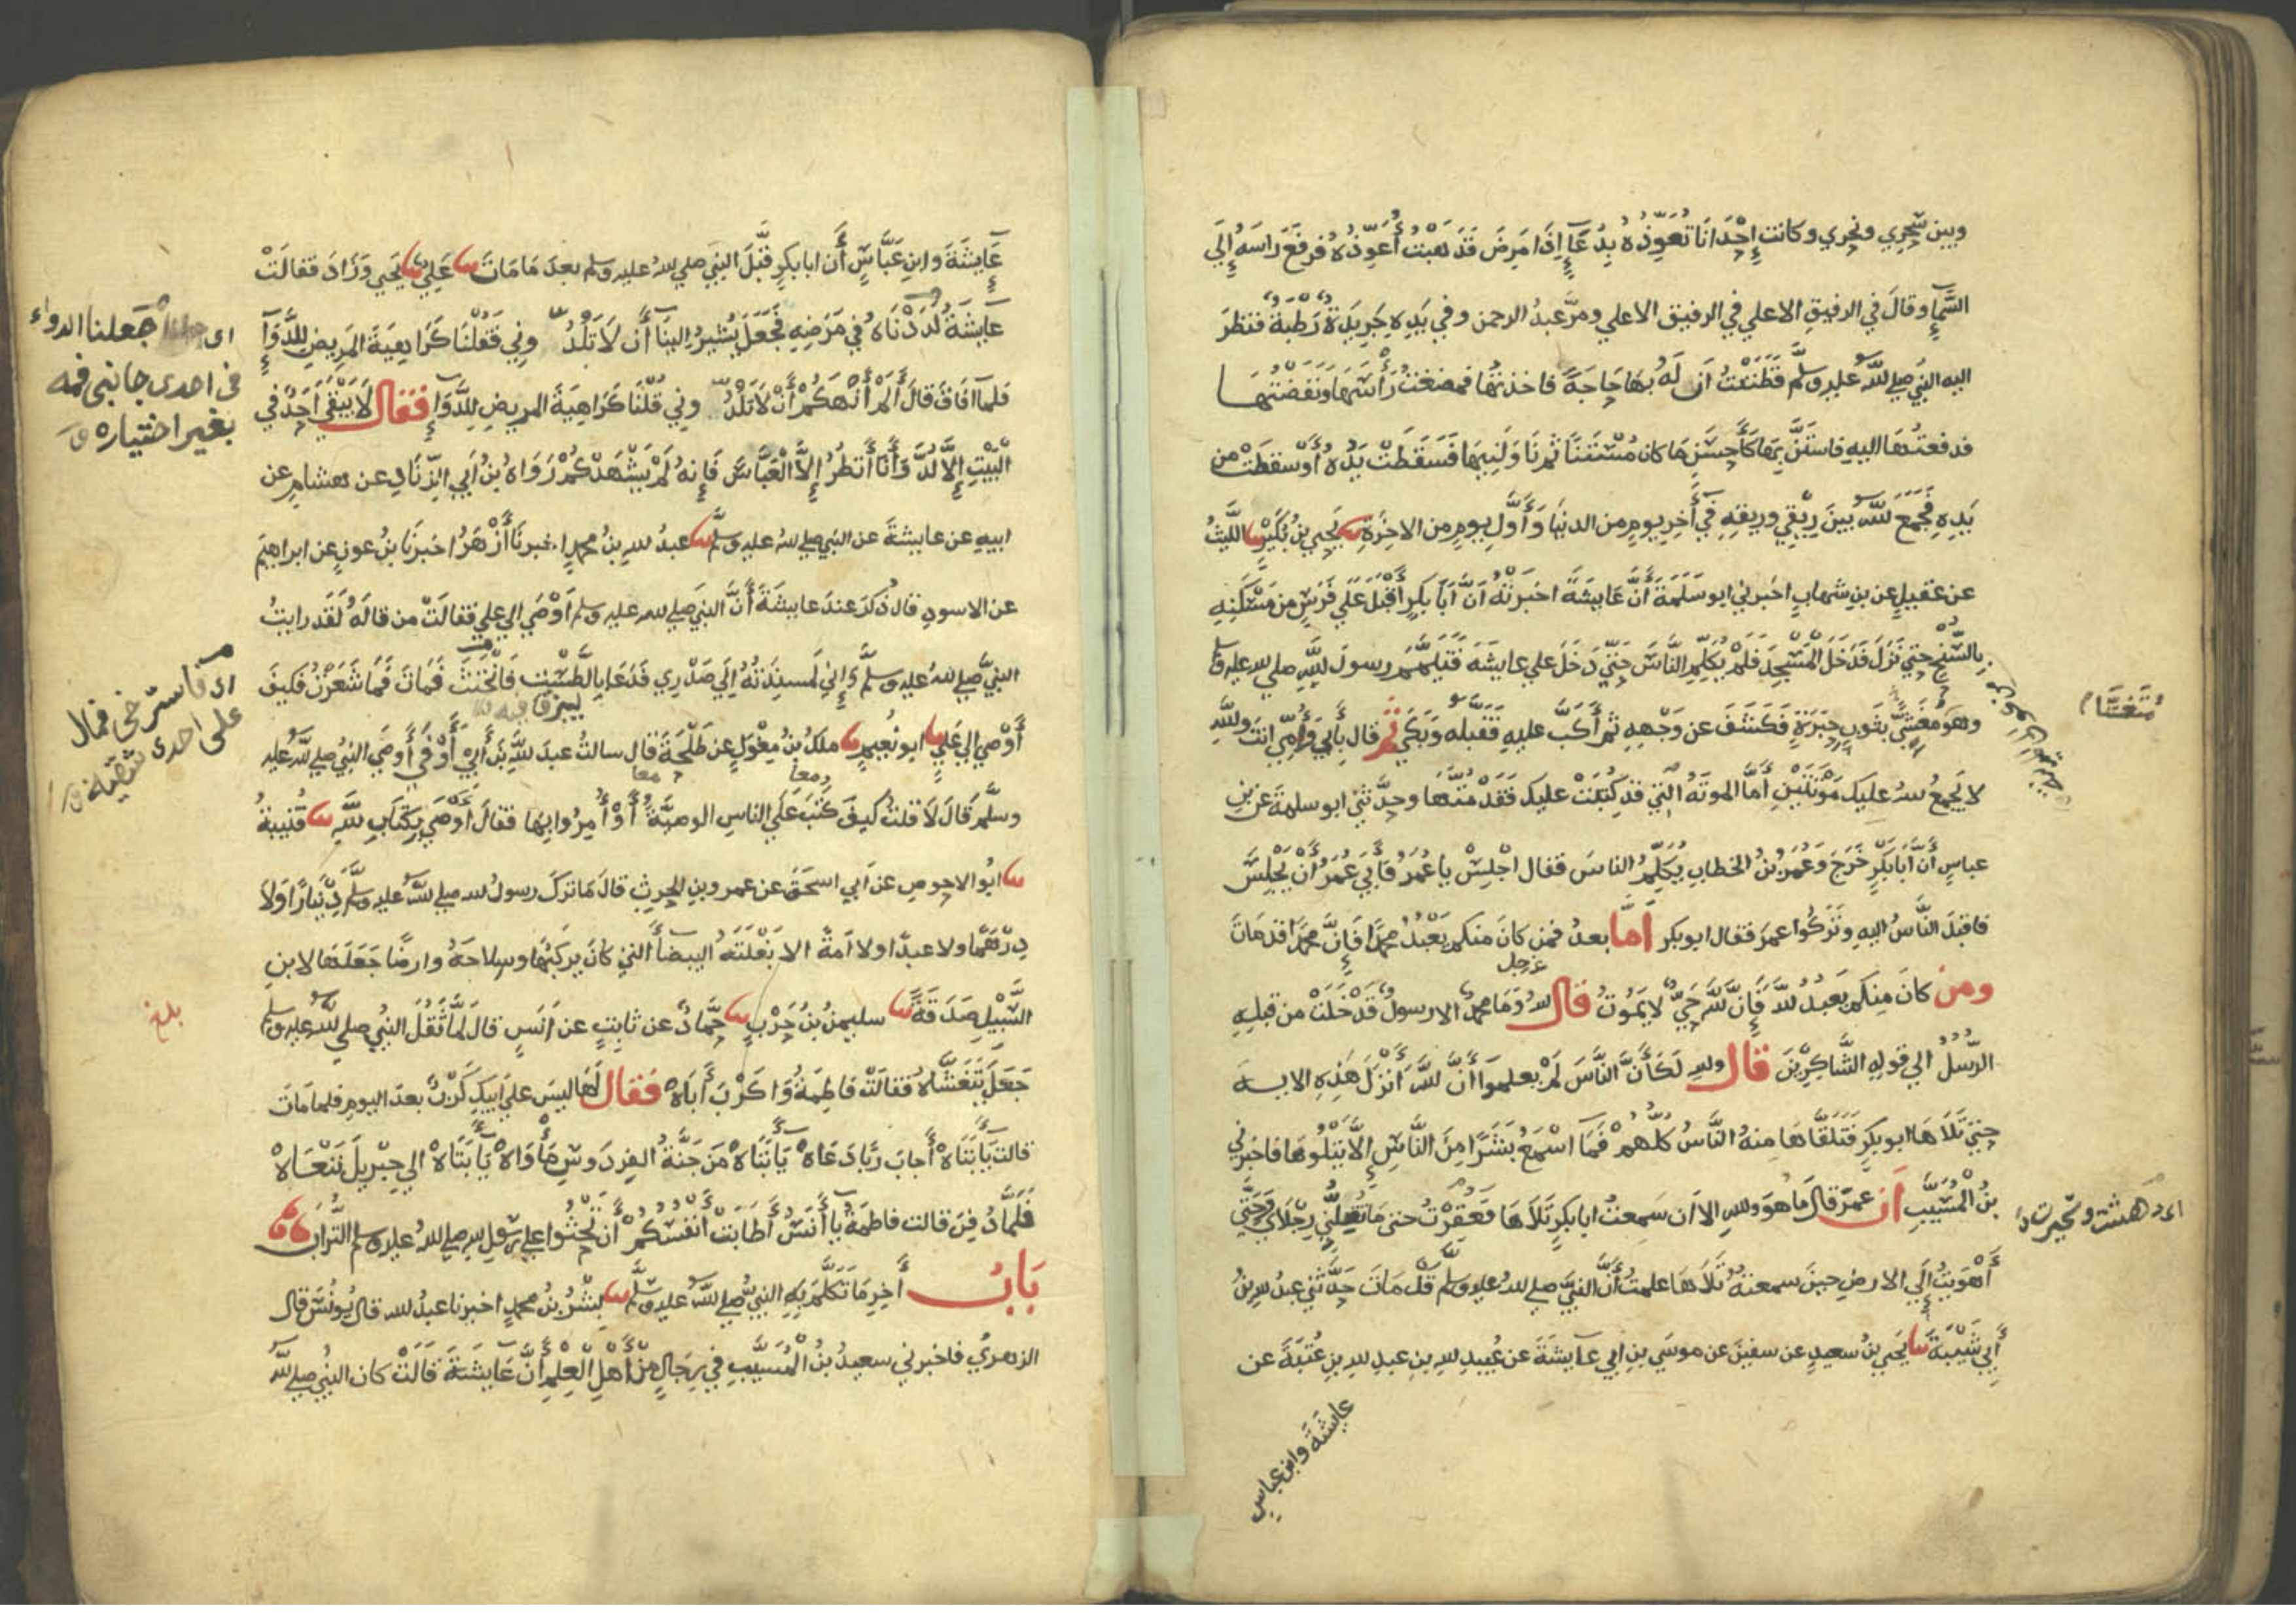 وبين سَحْرِي ونَحْرِي وكانت إِحْدَانَا تُعَوِّذُهُ بِدُعَآءٍ إِذَا مَرِضَ فَذَهَبْتُ أُعَوِّذُهُ فرفَعَ رَاسَهُ إِلَي
السَّمآءِ وقالَ في الرفيقِ الاعلي في الرفيق الاعلي ومرَّ عبدُ الرحمن وفي يَدِهِ جَرِيدَةٌ رَطْبَةٌ فنَظَرَ
اليه النبيّ صلي لله عليه وسلّم فَظَنَنْتُ اَنَّ لَهُ بِهَا حَاجَةً فاخذتُهَا فمضغتُ رَأْسَهَا وَنَفَضْتُهَا
فدفعتُهَا اليه فاستَنَّ بِهَا كَأَحْسَنِ مَا كان مُسْتَنًّا ثم نَاوَلَنِيهَا فَسَقَطَتْ يَدُهُ أَوْ سقَطَتْ من
يَدِهِ فَجَمَعَ للهُ بينَ رِيْقِي وريقِهِ فِي آخِرِ يومٍ من الدنيا وَأَوَّلِ يومٍ من الاخِرَةِ ثنا يَحيي بنُ بُكَيْرٍ ثنا اللَّيثُ
عن عقيلٍ عن بنِ شهابٍ اخبرني ابو سَلَمَةَ أَنَّ عَايشَةَ اخبَرَتْهُ اَنَّ اَبَا بَكرٍ أَقْبَلَ عَلَي فَرَسٍ من مَسْكَنِهِ
بالسُّنحِ حتي نَزَلَ فَدَخَلَ المَسْجِدَ فَلَمْ يُكَلِّمِ النَّاسَ حَتّي دَخَلَ علي عايشةَ فَتَيَمَّمَ رسولَ للهِ صلي لله عليه وسلم
وهوَ مُغَشًّي بثَوبِ حِبَرَةٍ فَكَشَفَ عن وَجْهِهِ ثم أَكَبَّ عليهِ فَقَبَّلَهُ وَبَكَي ثم قال بِأَبِي وَأُمِّي انتَ وللهِ
مُتَغَشًّا
لا يَجمعُ للهُ عليكَ مَوْتَتَيْنِ أَمَّا الموتَةُ التي قد كُتِبَتْ عليكَ فَقَدْ مُتَّهَا وحدَّثني ابو سلمةَ عن بنِ
عباسٍ أَنَّ أَبَا بَكْرٍ خَرَجَ وَعُمَرُ بْنُ الخطابِ يُكَلِّمُ الناسَ فقال اجْلِسْ يا عُمَرُ فَأَبَي عُمَرُ أَنْ يَجْلِسَ
فاقبَلَ النَّاسُ اليهِ وتَرَكُوا عمرَ فقال ابو بكر أَمَّا بعدُ فمن كانَ منكم يَعْبُدُ محمدًا فَإِنَّ محمدًا قد مَاتَ
ومن كانَ مِنكم يَعبُدُ للهَ فَإِنَّ للهَ حَيٌّ لا يَمُوتُ قال للهُ عز وجل وَمَا محمدٌ الا رسولٌ قَدْ خَلَتْ من قبلِهِ
الرُّسُلُ الي قولِهِ الشَّاكِرِينَ قال وللهِ لَكَأَنَّ النَّاسَ لَمْ يعلموا أَنَّ للهَ أَنْزَلَ هذِهِ الايــة
حتي تَلَاهَا ابو بكرٍ فَتَلَقَّاهَا منهُ النَّاسُ كُلُّهُمْ فَمَا اسْمَعُ بَشَرًا مِنَ النَّاسِ إِلَّا يَتْلُوهَا فاخبرني
بنُ الْمُسَيَّبِ أن عمرَ قال مَا هوَ وللهِ الا اَن سَمعتُ ابا بكرٍ تَلَاهَا فَعَقِرْتُ حتي مَا تُقِلُّنِي رِجْلَايَ وَحَتَّي
اى دهشت وتحيرت
أَهْوَيْتُ إِلَي الارضِ حينَ سمعتُهُ تَلَاهَا علمتُ أَنَّ النبيَّ صلي للهُ عليه وسلم قَدْ مَاتَ حَدَّثَنِي عبدُ للهِ بنُ
أَبِي شَيْبَةَ ثنا يَحيي بنُ سعيدٍ عن سفينَ عن موسَي بنِ ابي عايشَةَ عن عُبيدِ للهِ بنِ عبدِ للهِ بنِ عُتبَةَ عن
عايشة وابن عباس
عَايِشَةَ وابنِ عَبَّاسٍ أَن ابا بكرٍ قَبَّلَ النبيَّ صلي للهُ عليه وسلم بعدَ مَا مَاتَ ثنا عَلِيٌّ ثنا يَحيي وَزَادَ فقالَتْ
عايشَةُ لَدَدْنَاهُ فِي مَرَضِهِ فَجَعَلَ يُشِيرُ الينَا أَن لَا تَلُدُّونِي فَقُلْنَا كَرَاهِيَةَ المَرِيضِ للدَّوَآءِ
اى جعلنا الدواء
في احدى جانبى فمه
بغير اختياره
فلمآ افَاقَ قالَ أَلَمْ أَنْهَكُمْ أَنْ لَا تَلُدُّونِي قُلْنَا كَرَاهِيَةَ المريضِ للدَّوَآءِ فقال لَا يَبْقَي أَحَدٌ في
الْبَيْتِ إِلَّا لُدَّ وَأَنَا أَنظُرُ إِلَّا الْعَبَّاسَ فَإِنهُ لَمْ يَشْهَدْكُمْ رَوَاهُ بنُ أَبِي الزِّنَادِ عن هشامٍ عن
ابيهِ عن عايشةَ عن النبي صلي لله عليه وسلم ثنا عبدُ للهِ بنُ محمدٍ اخبرنَا أَزْهَرُ اخبرَنَا بنُ عونٍ عن ابراهيمَ
عن الاسودِ قال ذُكرَ عندَ عايشَةَ أَنَّ النبيَّ صلي لله عليه وسلم أَوْصَي الي عليٍ فقالَتْ من قالَهُ لَقَد رايتُ
النبيَّ صلي للهُ عليه وسلَّم وَإِنِّي لَمسنِدَتُهُ إِلَي صَدْرِي فَدَعَا بِالطَّسْتِ فَانْخَنَثَ فَمَاتَ فَمَا شَعَرْتُ فكيفَ
ليبزق فيه
اى فاسترخى فمال
على احدى شقيه
أَوْصَي الي عَلِيٍّ ثنا ابو نُعيمٍ ثنا ملكُ بنُ مِغْوَلٍ عن طَلْحَةَ قال سالتُ عبدَ للهِ بنَ أَبِي أَوْفَي أَوصَي النبيُّ صلي للهُ عليه
وسلَّم قَالَ لَا فقلتُ كيفَ كُتِبَ عَلَي الناسِ الوصيَّةُ أَوْ أُمِرُوا بِهَا فقالَ أَوْصَي بِكِتَابِ للهِ ثنا قُتيبةُ
ثنا ابُو الاحوصِ عن أبي اسحَقَ عن عمرو بنِ الحرثِ قالَ مَا تركَ رسولُ لله صلي للهُ عليه وسلَّم دِيْنَارًا وَلَا
دِرْهَمًا ولا عبدًا ولا أَمةً الا بَغْلَتَهُ البيضآءَ التي كانَ يركبُهَا وسِلاحَهُ وارضًا جَعَلَهَا لابنِ
السَّبِيْلِ صَدَقَةً ثنا سليمنُ بنُ حَرْبٍ ثنا حَمَّادٌ عن ثابِتٍ عن انَسٍ قالَ لَمَّا ثَقُلَ النبيُ صلي للهُ عليه وسلم
بلغ
جَعَلَ يَتَغَشَّاهُ فقالَتْ فَاطِمَةُ وَا كَرْبَ أَبَاهْ فَقال لَهَا ليسَ علَي أَبيكِ كَرْبٌ بعدَ اليومِ فلما مَاتَ
قالت يَا أَبَتَاهْ أَجابَ رَبًّا دَعَاهْ يَا أَبَتَاهْ مَن جَنَّةُ الفِردَوسِ مَأْوَاهْ يَا أَبَتَاهْ الي جبريلَ نَنْعَاهْ
فَلَمَّا دُفِنَ قالت فاطمَةُ يا أَنَسُ أَطَابَتْ أَنْفُسُكُمْ أَن تَحْثُوا علي رسولِ للهِ صلي للهُ عليه وسلم التُّرَابَ
بَابُ آخِرِ مَا تَكَلَّمَ بِهِ النبيُّ صلي للهُ عليه وسلَّم ثنا بِشْرُ بنُ محمدٍ اخبرنا عبدُ لله قال يُونُسُ قال
الزهريُّ فاخبرني سعيدُ بنُ الْمُسَيَّبِ فِي رِجَالٍ مِنْ أَهْلِ الْعِلمِ أَنَّ عَايشَةَ قَالَتْ كان النبيُّ صلي للهُ